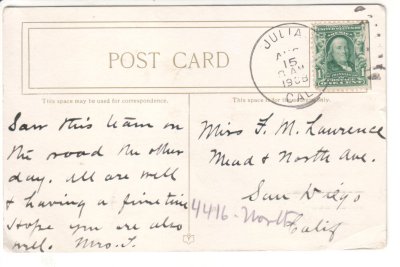 POST CARD
JULIAN
AUG
15
8 AM
1908
CAL
1
This space may be used for correspondence.
This space is for the address only.
Saw this team on
the road the other
day. All are well
& having a fine time
Hope you are also
well. Mrs. T.
Miss F. M. Lawrence
Mead & North Ave.
San Diego
4416-North
Calif